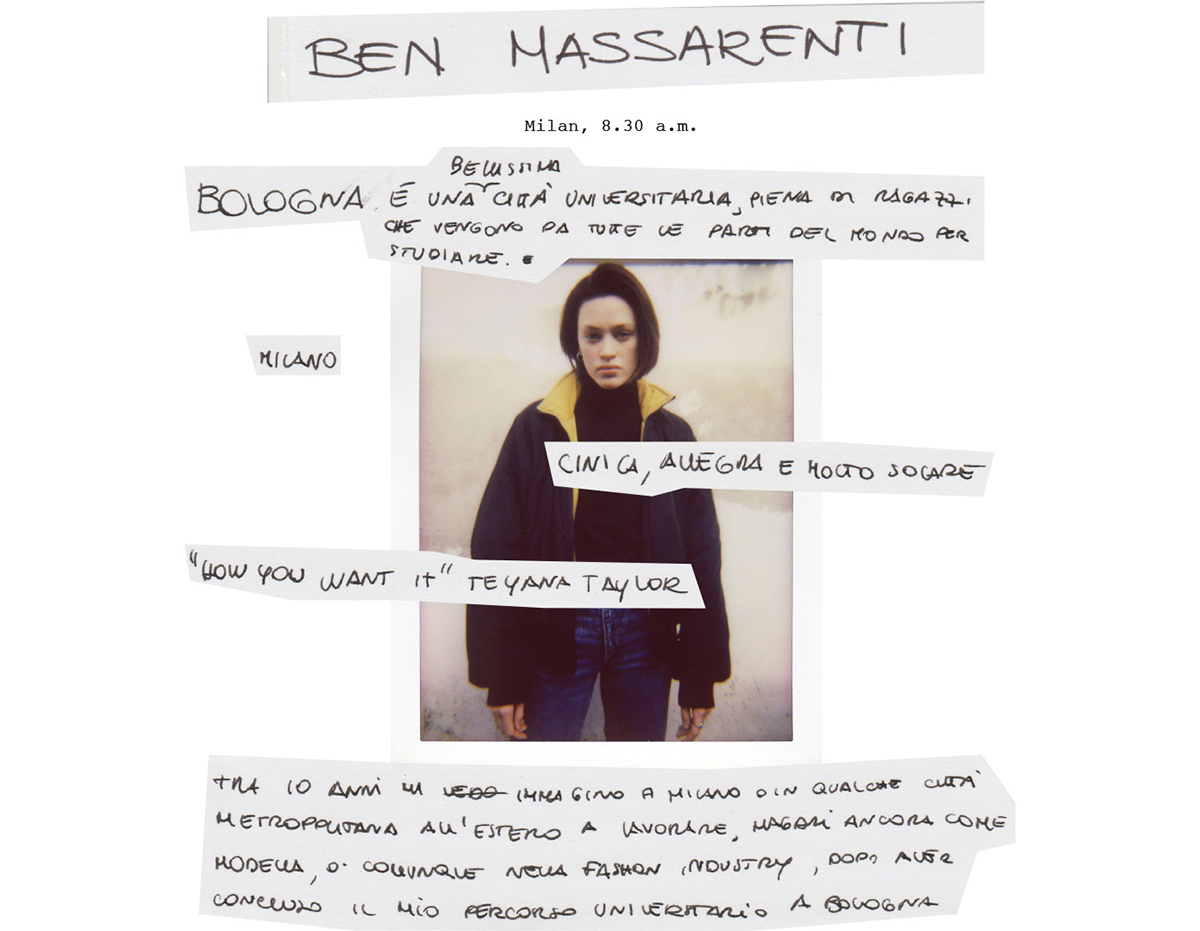 BEN MASSARENTI
Milan, 8.30 a.m.
BELLISSIMA
BOLOGNA É UNA CITTÀ UNIVERSITARIA, PIENA DI RAGAZZI
CHE VENGONO DA TUTTE LE PARTI DEL MONDO PER
STUDIARE.
MILANO
CINICA, ALLEGRA E MOLTO SOLARE
"HOW YOU WANT IT" TEYANA TAYLOR
TRA 10 ANNI MI VEDO IMMAGINO A MILANO O IN QUALCHE CITTÀ
METROPOLITANA ALL'ESTERO A LAVORARE, MAGARI ANCORA COME
MODELLA, O COMUNQUE NELLA FASHION INDUSTRY, DOPO AVER
CONCLUSO IL MIO PERCORSO UNIVERSITARIO A BOLOGNA